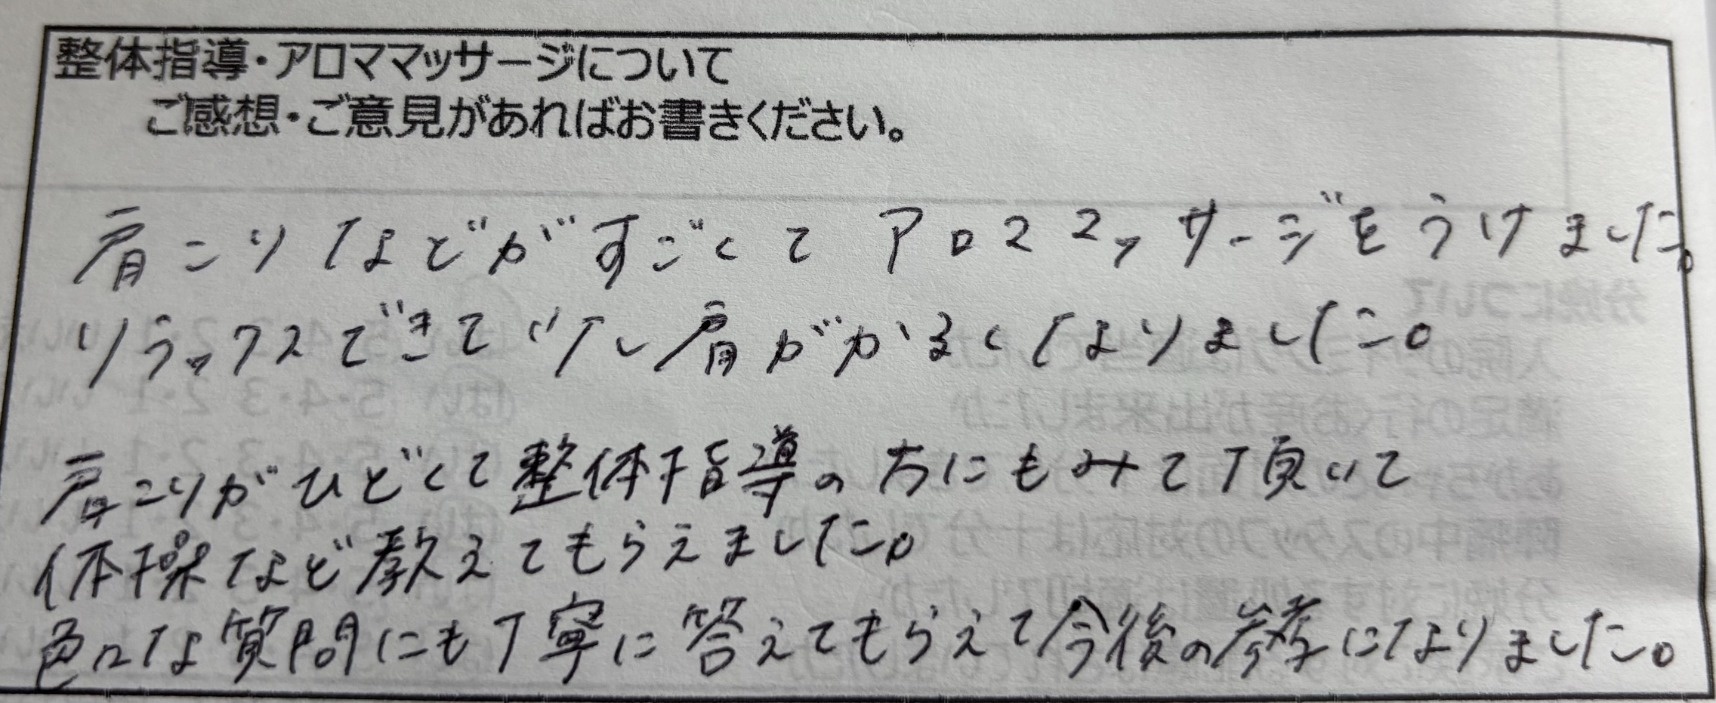 整体指導・アロママッサージについて
ご感想・ご意見があればお書きください。
肩こりなどがすごくて アロママッサージをうけました。
リラックスできて少し肩がかるくなりました。
肩こりがひどくて整体指導の方にもみて頂いて
体操など教えてもらえました。
色々な質問にも丁寧に答えてもらえて今後の参考になりました。